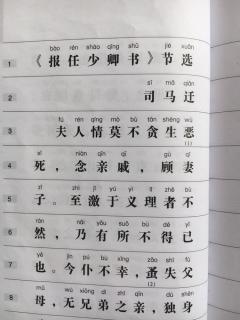 bào rén shào qīng shū jié xuǎn
1 《报任少卿书》节选
sī mǎ qiān
2 司马迁
fú rén qíng mò bù tān shēng wù
3 夫人情莫不贪生恶
(1)
sǐ niàn qīn qī gù qī
4 死，念亲戚，顾妻
zǐ zhì jī yú yì lǐ zhě bù
5 子。至激于义理者不
rán nǎi yǒu suǒ bù dé yǐ
6 然，乃有所不得已
yě jīn pú bù xìng zǎo shī fù
7 也。今仆不幸，蚤失父
(2)
mǔ wú xiōng dì zhī qīn dú shēn
8 母，无兄弟之亲，独身